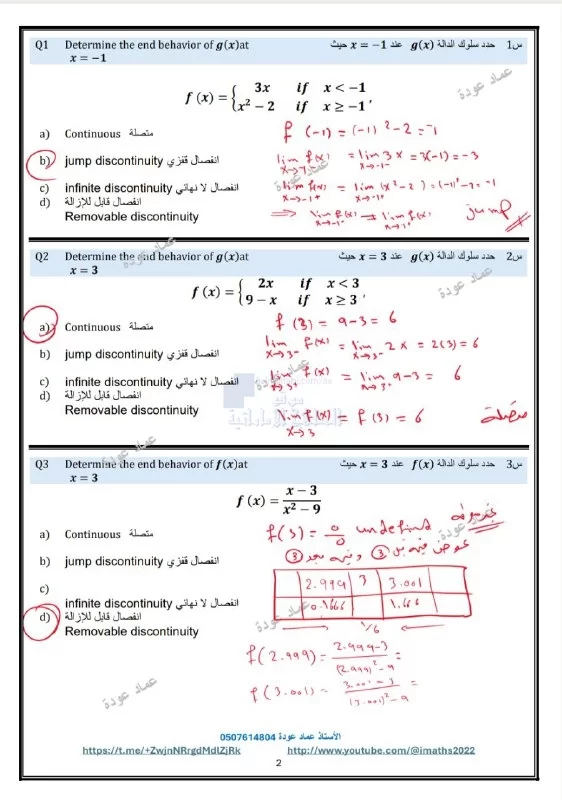 Q1 Determine the end behavior of g(x)at x = −1 س1 حدد سلوك الدالة g(x) عند x = −1 حيث
f (x) = { 3x if x < −1
x² − 2 if x ≥ −1 ,
عماد عودة
a) Continuous متصلة
f (-1) = (-1)² - 2 = -1
b) jump discontinuity انفصال قفزي
lim f(x) = lim 3x = 3(-1) = -3
x→-1⁻ x→-1⁻
c) infinite discontinuity انفصال لا نهائي
lim f(x) = lim (x²-2) = (-1)²-2 = -1
x→-1⁺ x→-1⁺
d) انفصال قابل للإزالة
Removable discontinuity
⇒ lim f(x) ≠ lim f(x) jump
x→-1⁻ x→-1⁺
عماد عودة
Q2 Determine the end behavior of g(x)at x = 3 س2 حدد سلوك الدالة g(x) عند x = 3 حيث
عماد عودة
f (x) = { 2x if x < 3
9 − x if x ≥ 3 ,
a) Continuous متصلة
f (3) = 9-3 = 6
b) jump discontinuity انفصال قفزي
lim f(x) = lim 2x = 2(3) = 6
x→3⁻ x→3⁻
c) infinite discontinuity انفصال لا نهائي
lim f(x) = lim 9-3 = 6
x→3⁺ x→3⁺
عماد عودة
d) انفصال قابل للإزالة
Removable discontinuity
lim f(x) = f(3) = 6 متصلة
x→3
عماد عودة
Q3 Determine the end behavior of f(x)at x = 3 س3 حدد سلوك الدالة f(x) عند x = 3 حيث
f (x) = x − 3 / x² − 9
a) Continuous متصلة
f(3) = 0/0 undefind غير معرفة
عماد عودة
b) jump discontinuity انفصال قفزي
عوض قيمة قبل 3 وقيمة بعد 3
c)
2.999 3 3.001
infinite discontinuity انفصال لا نهائي
0.1666 1.666
d) انفصال قابل للإزالة
Removable discontinuity
عماد عودة
1/6
f(2.999) = 2.999-3 / (2.999)²-9 =
f(3.001) = 3.001-3 / (3.001)²-9 =
عماد عودة
الأستاذ عماد عودة 0507614804
https://t.me/+ZwjnNRrgdMdlZjRk http://www.youtube.com/@imaths2022
2